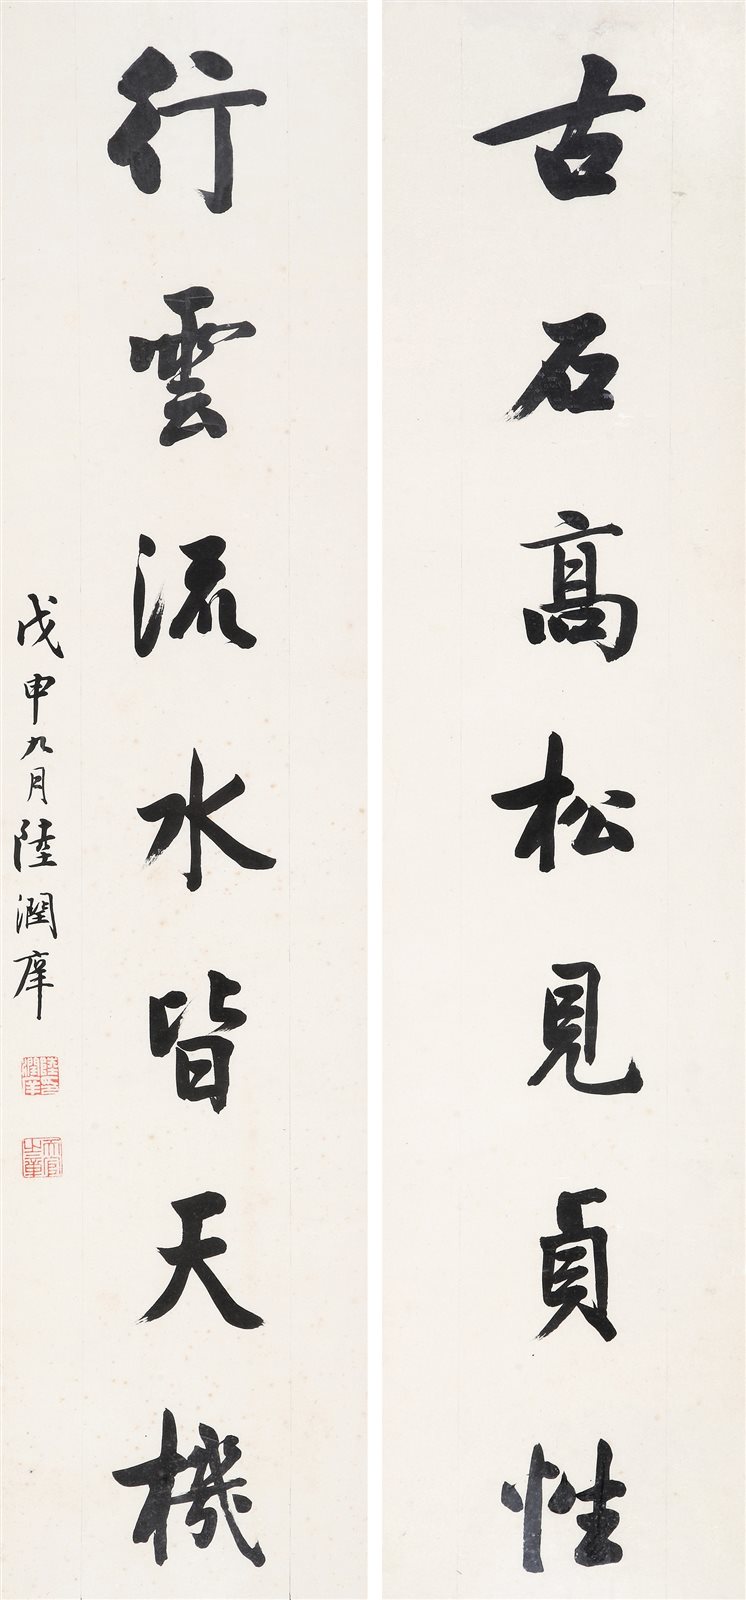 古石高松見貞性
行雲流水皆天機
戊申九月陸潤庠
陸印潤庠